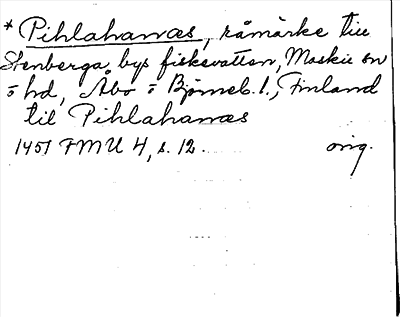 * Pihlahanæs, råmärke till
Stenberga bys fiskevatten, Maskie sn
o hd, Åbo o Björneb. l., Finland
til Pihlahanæs
1451 FMU 4, s. 12. orig.